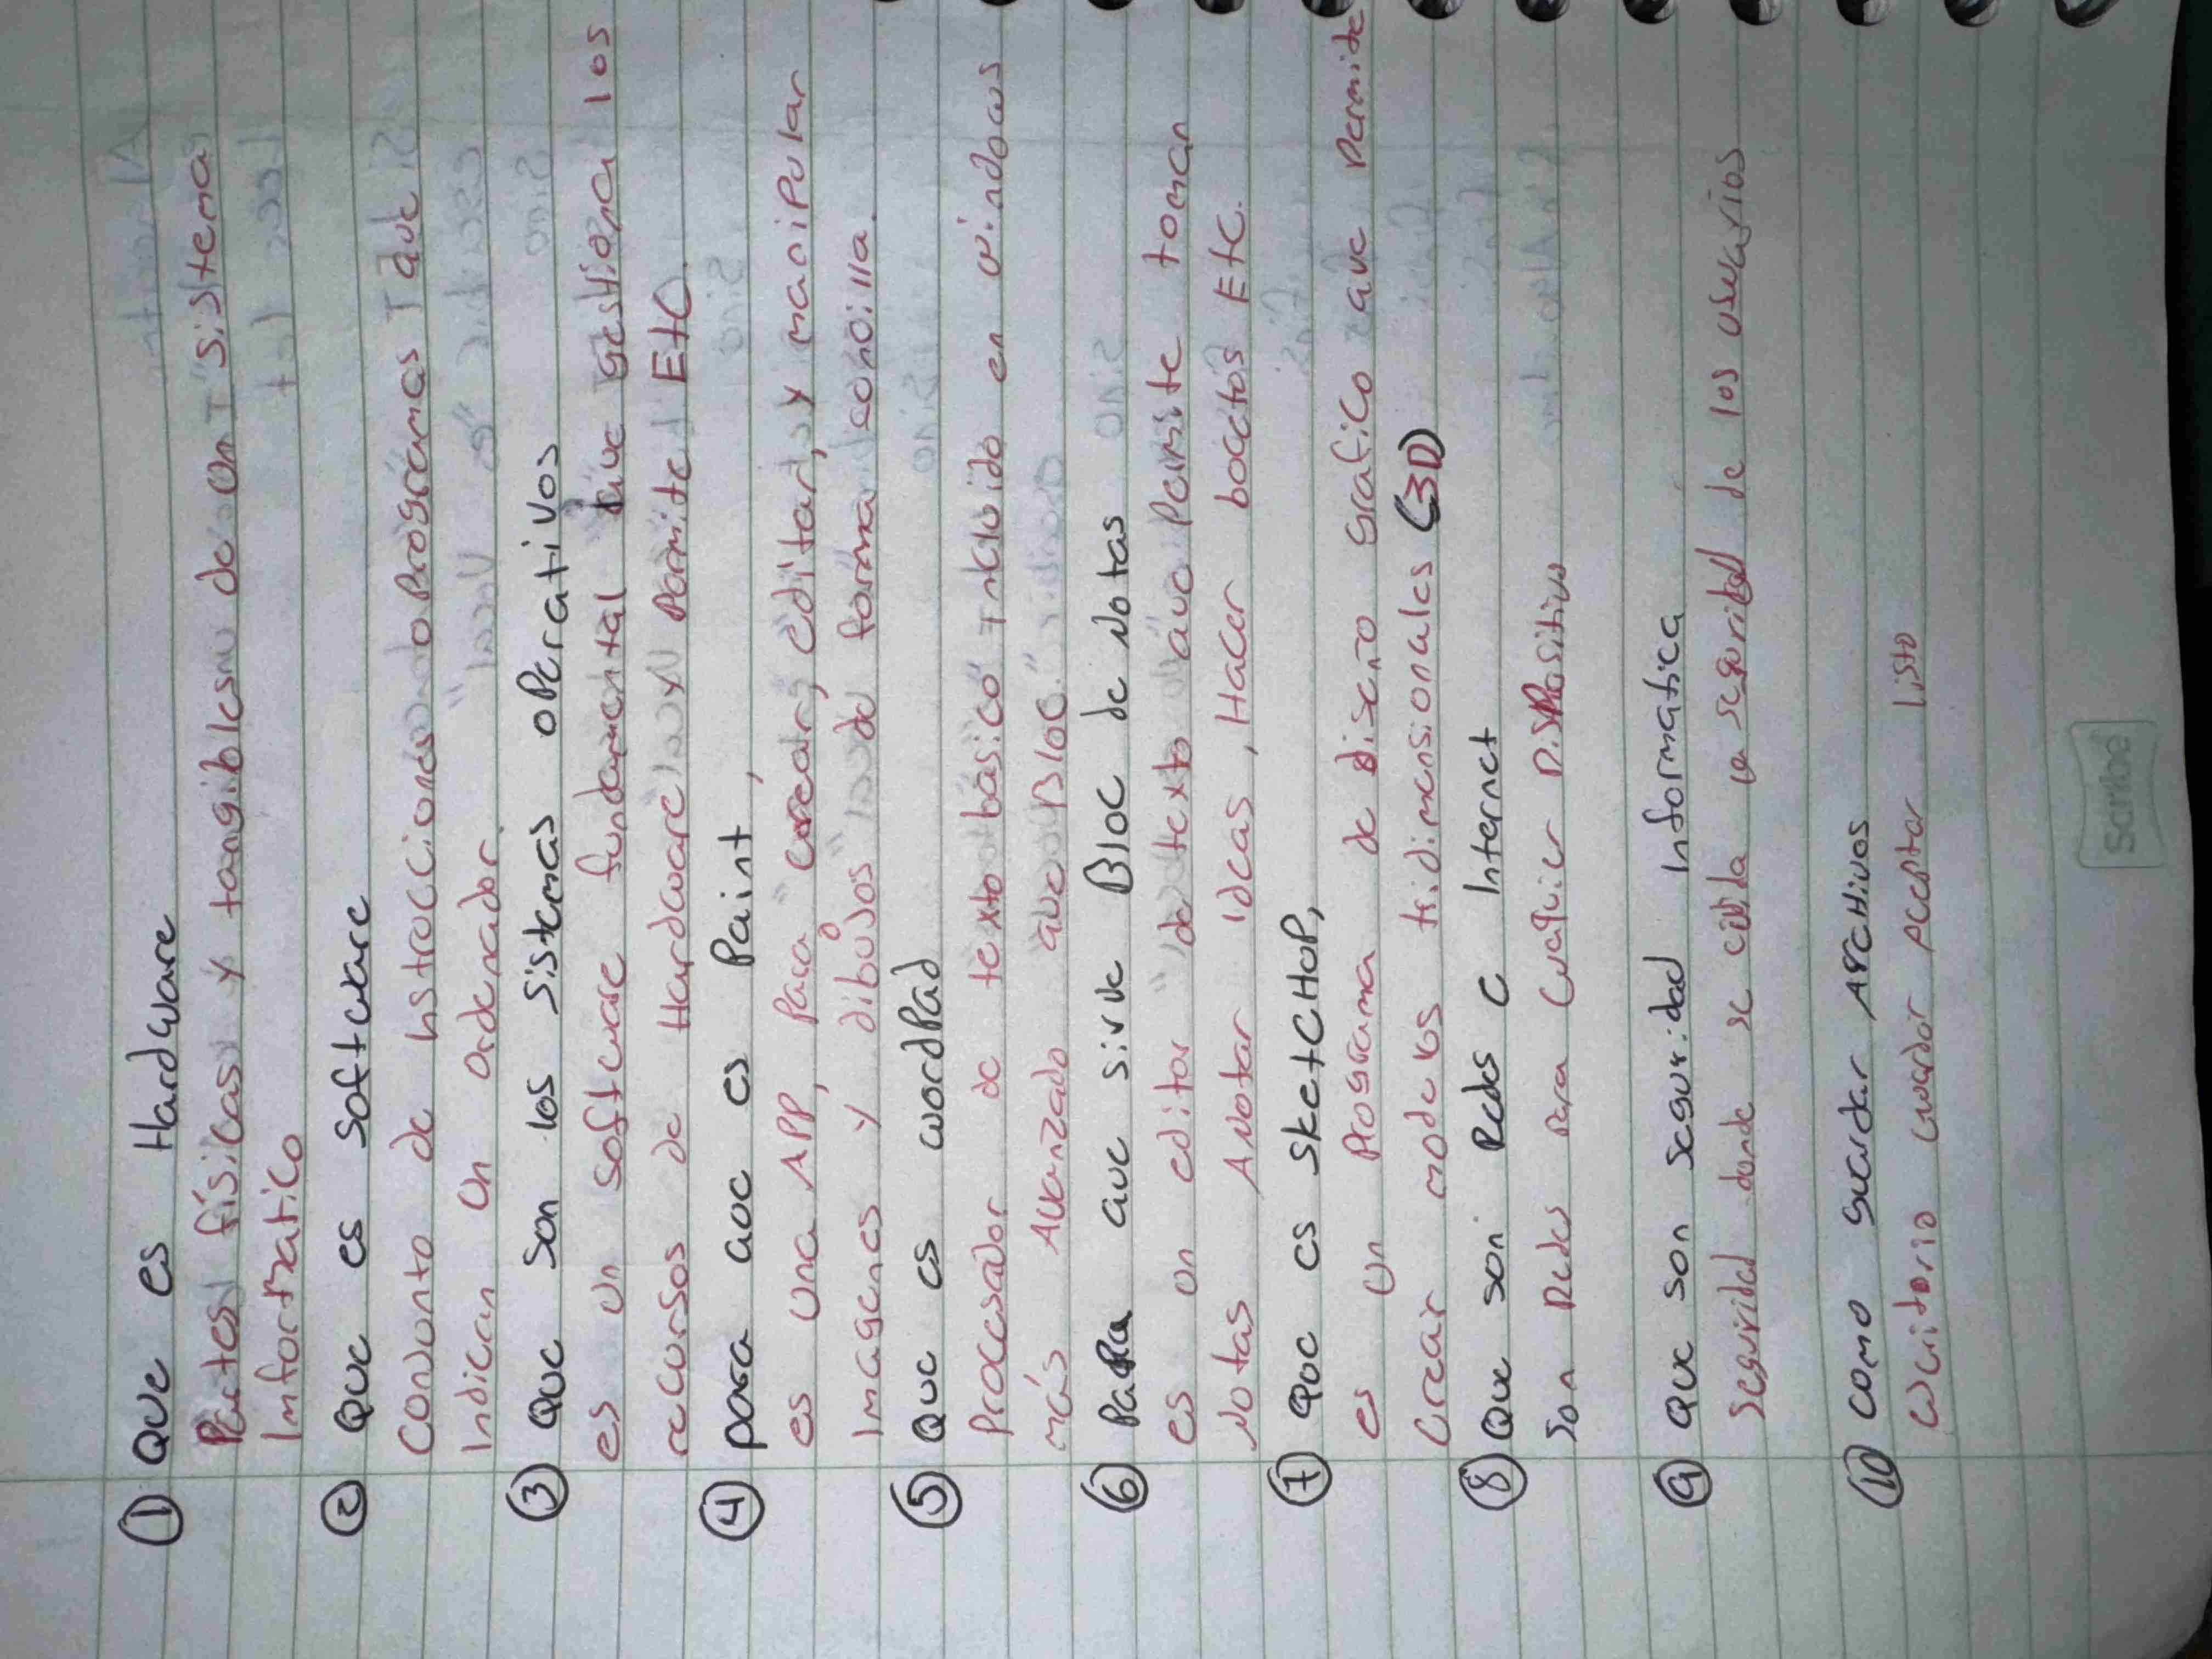 ① Que es Hardware
Partes físicas y tangibles de un sistema
Informatico
② Que es software
Conjunto de Instrucciones o Programas que
Indican un ordenador.
③ Que son los sistemas operativos
es un software fundamental que gestiona los
recursos de Hardware y Permite Etc.
④ para que es Paint,
es una APP, Para crear, editar, y manipular
Imagenes y dibujos de forma sencilla.
⑤ Que es wordPad
Procesador de texto básico Incluido en windows
más Avanzado que Bloc.
⑥ Para que sirve Bloc de Notas
es un editor de texto que Permite tomar
Notas Anotar Ideas, Hacer bocetos Etc.
⑦ que es sketCHUP,
es un Programa de diseño grafico que Permite
Crear modelos tridimensionales (3D)
⑧ Que son Redes e Internet
Son Redes Para Cualquier Dispositivo
⑨ que son seguridad Informatica
seguridad donde se cuida la seguridad de los usuarios
⑩ como guardar ArcHivos
escritorio guardar Aceptar listo
Scribe